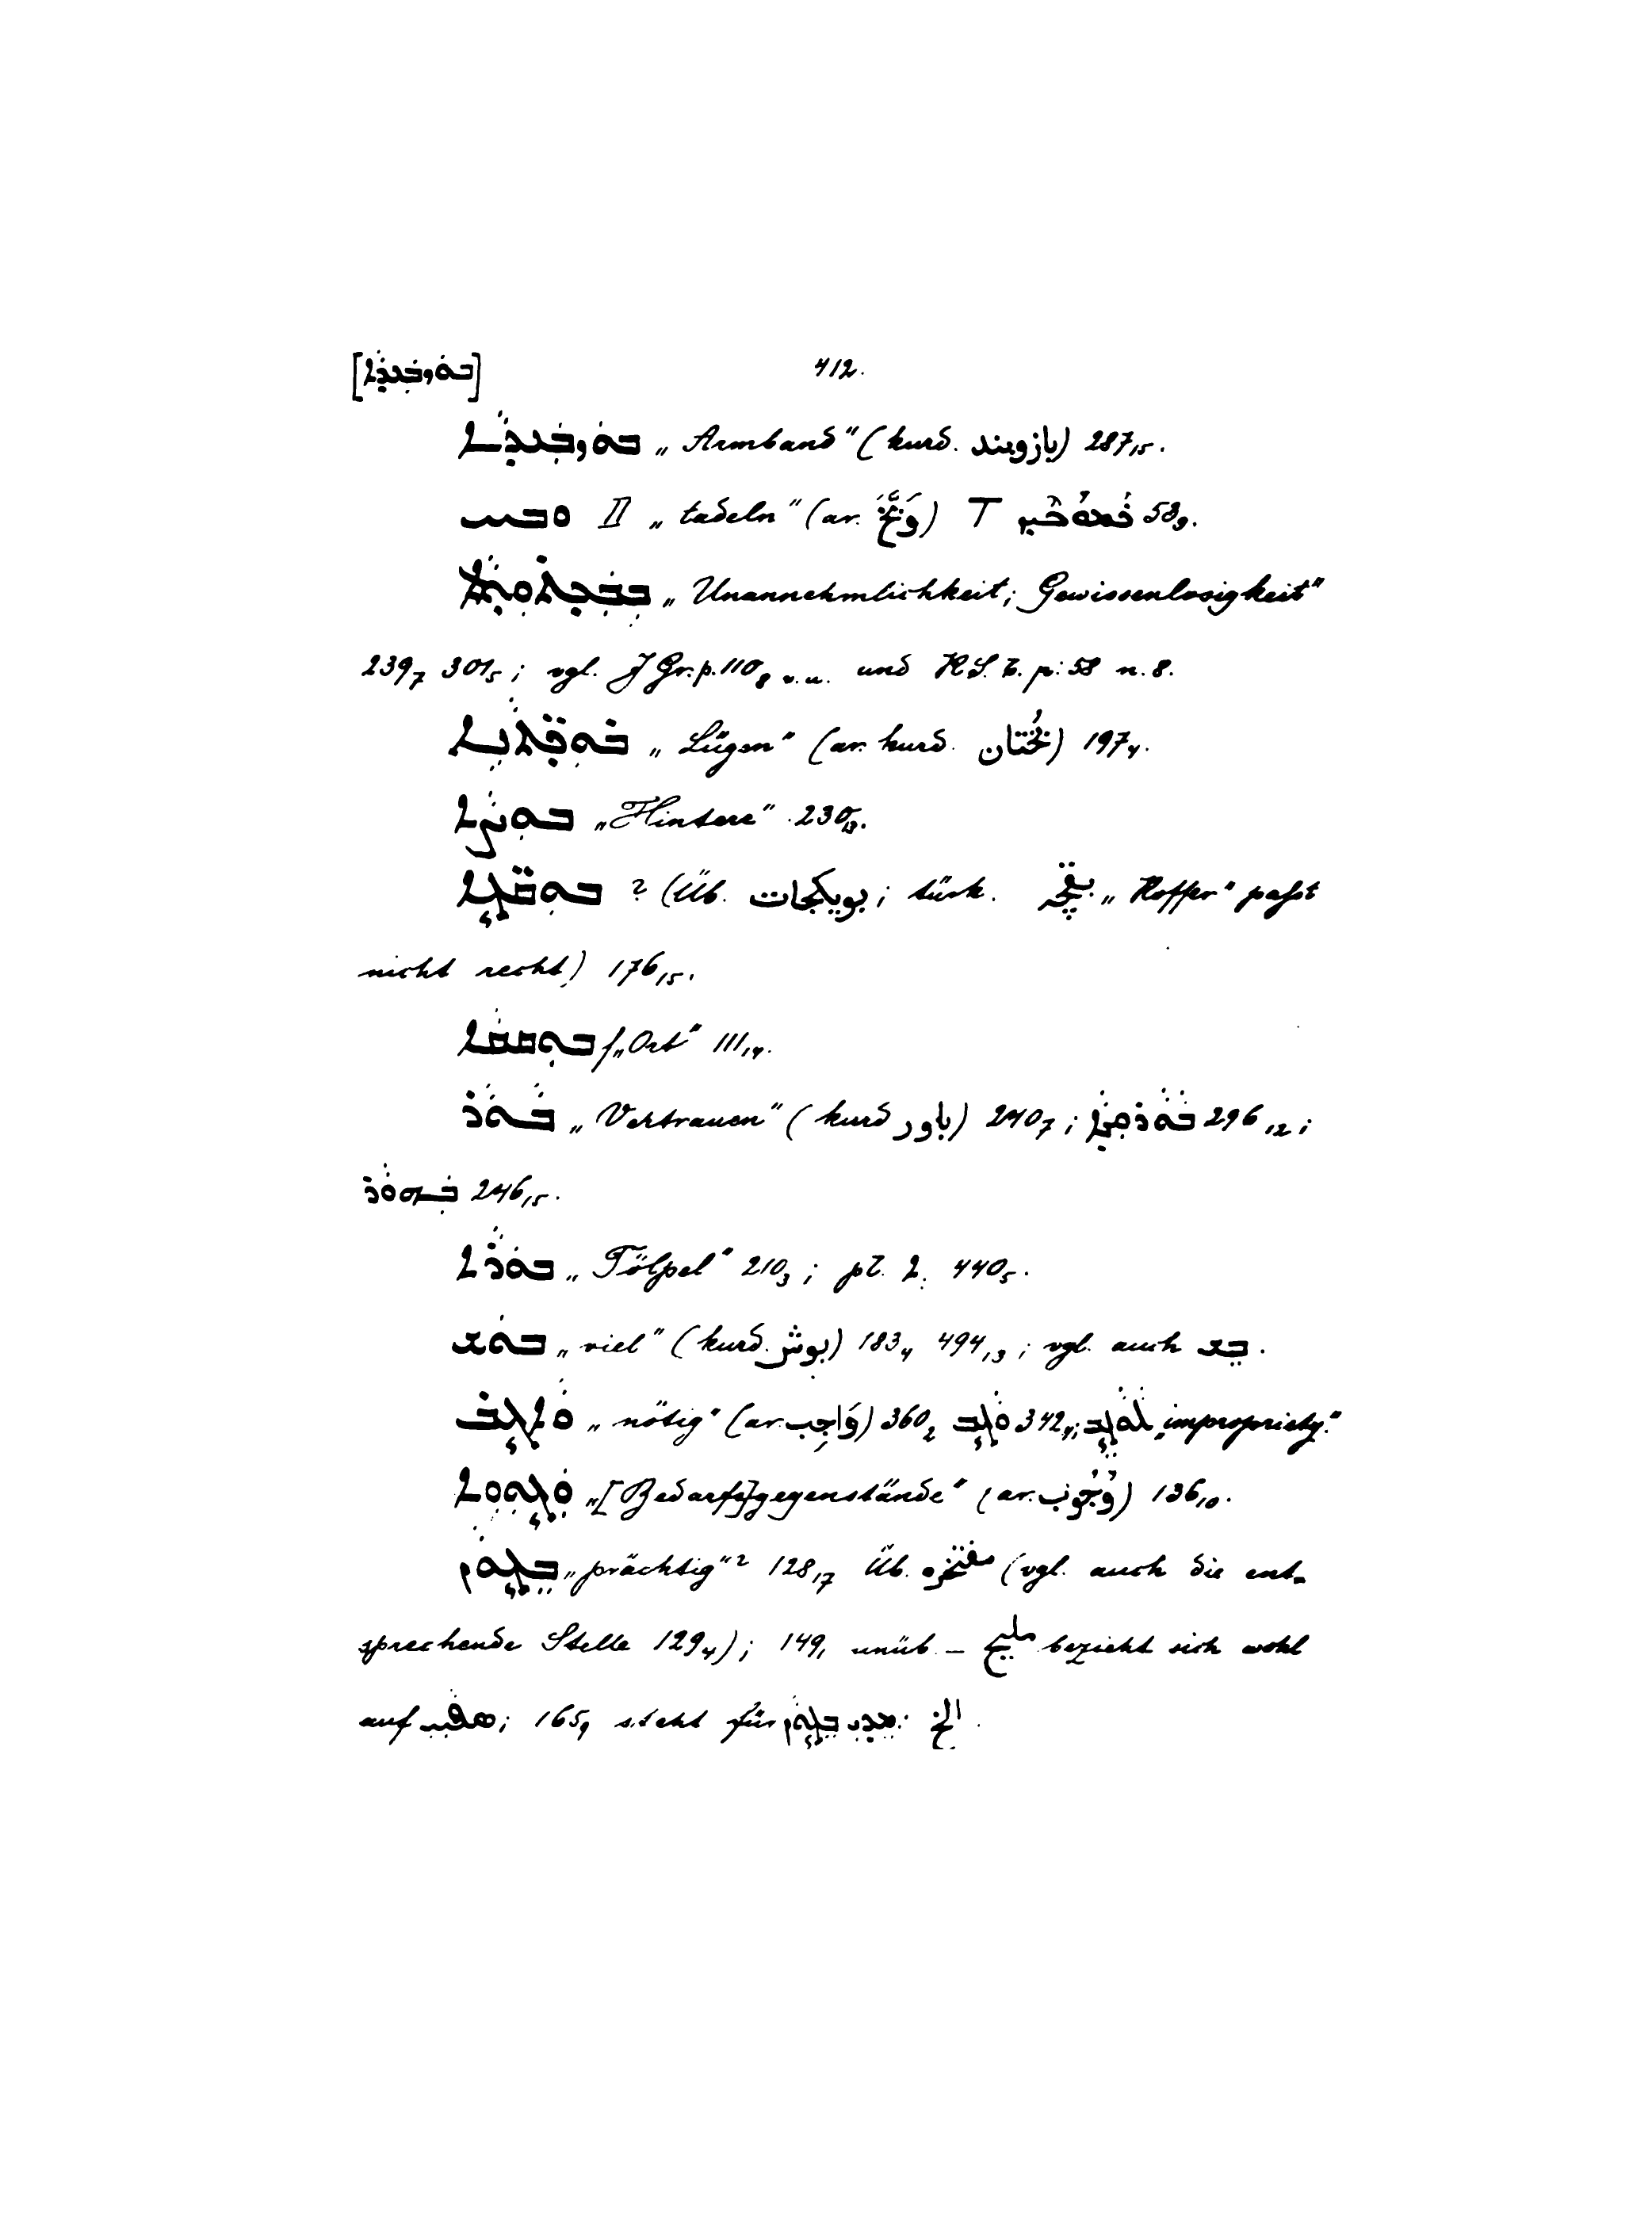 [ܒܘܙܒܢܕܐ] 412.
ܒܘܙܒܢܕܐ „Armband“ (kurd. بازوبند) 287,15.
ܘܒܚ II „tadeln“ (ar. وَبَّخَ) T 58,9.
„Unannehmlichkeit; Gewissenlosigkeit“
239,7 301,5; vgl. J Gr. p. 110,8 v. u. und KS. Ü. p. 58 n. 8.
„Lügen“ (ar. kurd. بُختان) 197,4.
„Hintere“ 230,13.
? (Üb. بويكجات; türk. بقچه „Koffer“ paßt
nicht recht) 176,15.
f „Ort“ 111,14.
ܒܘܪ „Vertrauen“ (kurd باور) 240,7; 296,12;
246,15.
ܒܘܪܐ „Tölpel“ 210,3; pl. 440,5.
ܒܘܫ „viel“ (kurd. بوش) 183,4 494,13; vgl. auch ܒܫ.
ܘܐܓܒ „nötig“ (ar. وَاجِب) 360,2 ܘܓܒ 342,4; „impropriety.“
„[Bedarfs]gegenstände“ (ar. وُجُوب) 136,10.
„prächtig“? 128,17 Üb. مفتخره (vgl. auch die ent-
sprechende Stelle 129,4); 149,1 unüb. – مليح bezieht sich wohl
auf ; 165,9 steht für الخ.